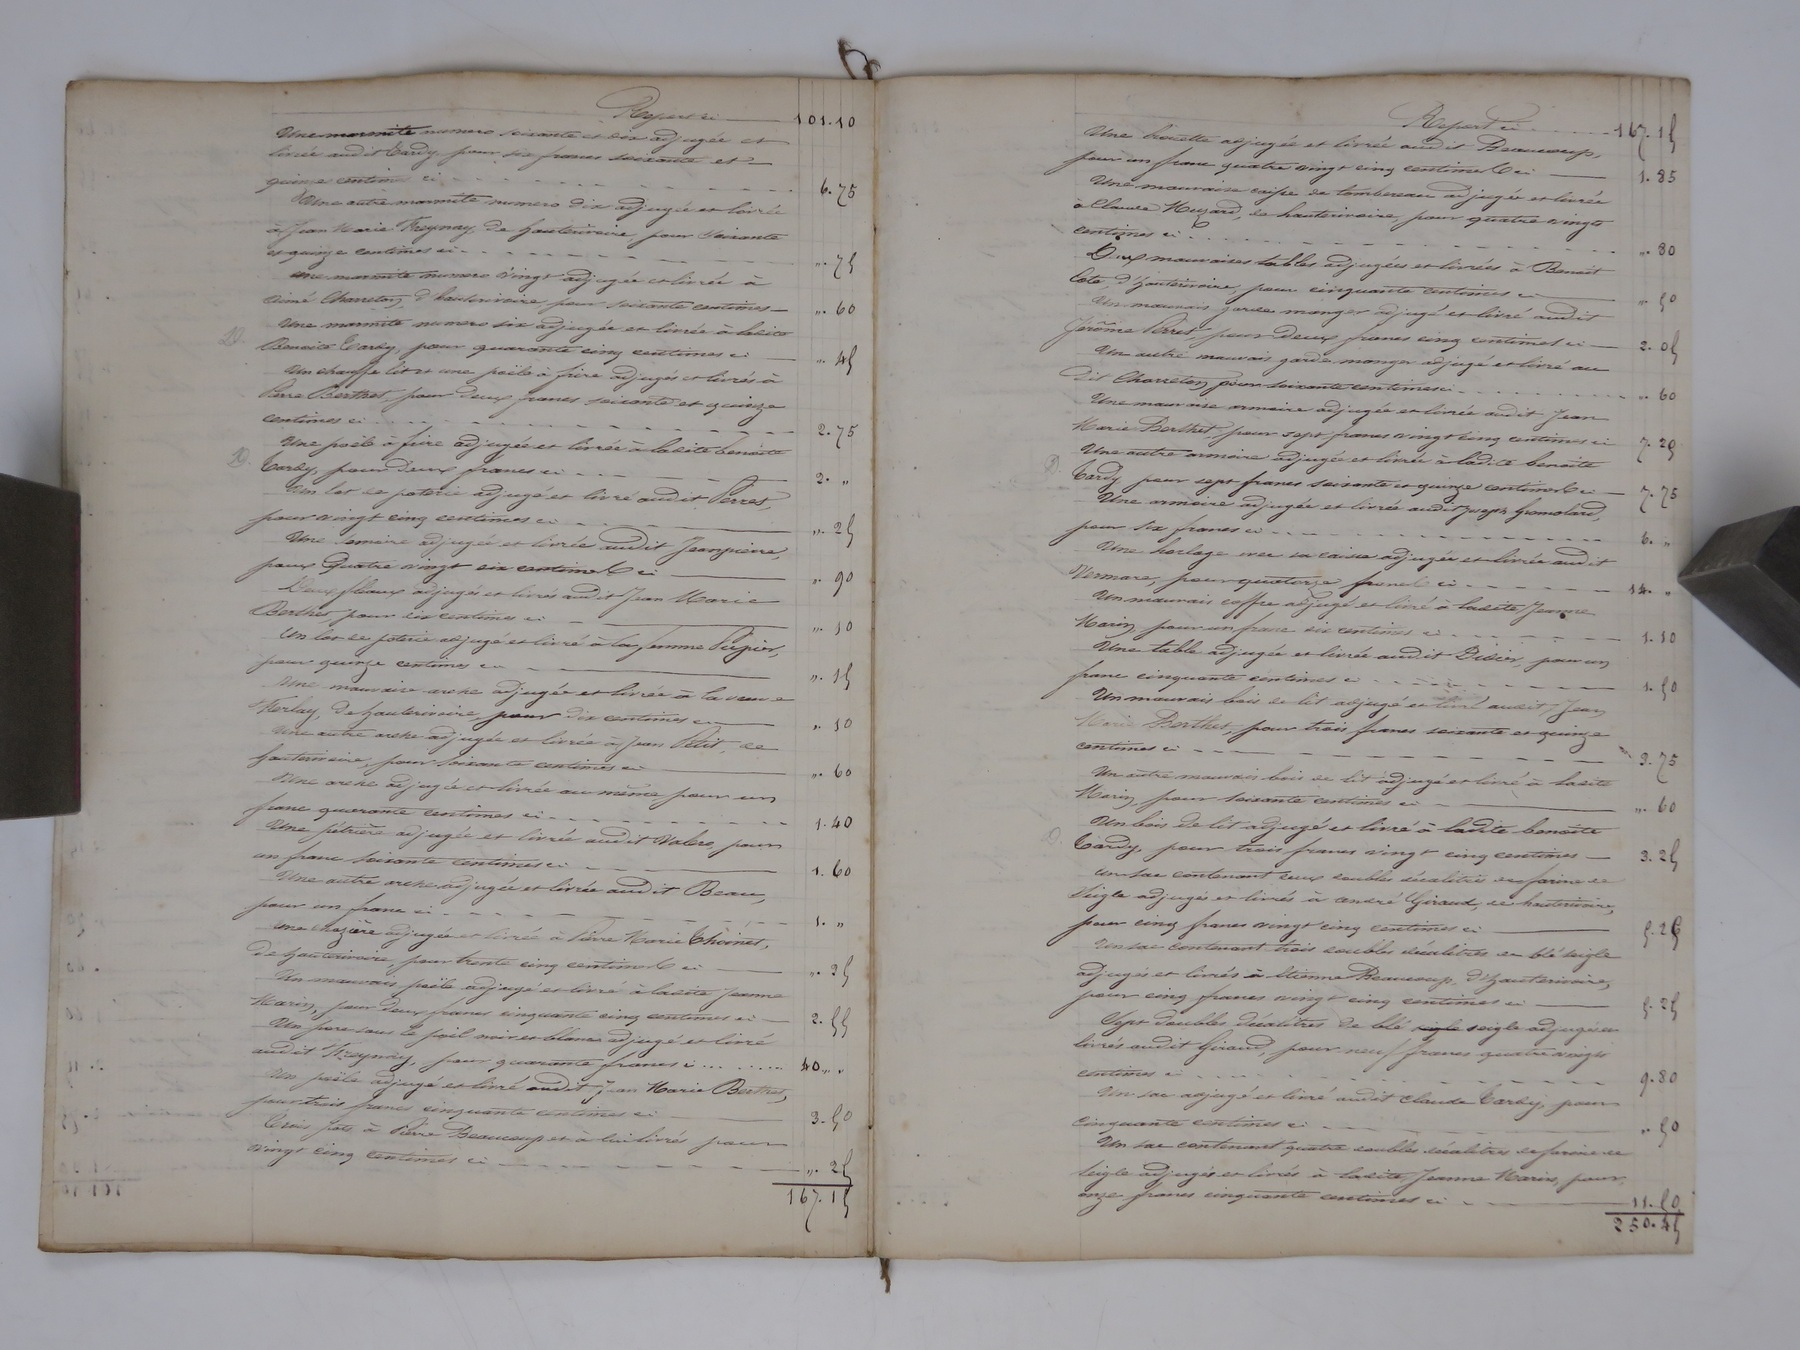 Report ci 101.10
Une marmite numero soixante et dix adjugée et
livrée audit Tardy, pour six francs soixante et
quinze centimes ci 6.75
Une autre marmite numero dix adjugée et livrée
à Jean Marie Treynay, de hauterivoire, pour soixante
et quinze centimes ci ". 75
Une marmite numero vingt adjugée et livrée à
aimé Charreton, d'hauterivoire, pour soixante centimes ". 60
Une marmite numero six adjugée et livrée à ladite
Benoite Tardy, pour quarante cinq centimes ci ". 45
Un chauffe lit et une poële à frire adjugés et livrés à
Pierre Berthet, pour deux francs soixante et quinze
centimes ci 2.75
Une poële à frire adjugée et livrée à ladite benoite
Tardy, pour deux francs ci 2. "
Un lot de poterie adjugé et livré audit Perret,
pour vingt cinq centimes ci ". 25
Une adjugée et livrée audit Jeanpierre,
pour quatre vingt dix centimes ci ". 90
Deux fléaux adjugés et livrés audit Jean Marie
Berthet pour dix centimes ci ". 10
Un lot de poterie adjugé et livré à la femme
pour quinze centimes ci ". 15
Une mauvaise arche adjugée et livrée à la veuve
de hauterivoire, pour dix centimes ci ". 10
Une autre arche adjugée et livrée à Jean Petit, de
hauterivoire, pour soixante centimes ci ". 60
Une arche adjugée et livrée au même, pour un
franc quarante centimes ci 1.40
Une pétrière adjugée et livrée audit pour
un franc soixante centimes ci 1.60
Une autre arche adjugée et livrée audit Beau,
pour un franc ci 1. "
Une adjugée et livrée à Pierre Marie Thoinet,
de hauterivoire, pour trente cinq centimes ci ". 35
Un mauvais poële adjugé et livré à ladite Jeanne
Marin, pour deux francs cinquante cinq centimes ci 2.55
Un porc sous le poil noir et blanc adjugé et livré
audit Treynay, pour quarante francs ci 40. "
Un poële adjugé et livré audit Jean Marie Berthet,
pour trois francs cinquante centimes ci 3.50
Trois pots à Pierre Beaucoup et à lui livrés pour
vingt cinq centimes ci ". 25
167.15
Report ci 167.15
Une adjugée et livrée audit Beaucoup,
pour un franc quatre vingt cinq centimes ci 1.85
Une mauvaise caisse de tombereau adjugée et livrée
à Claude de hauterivoire pour quatre vingts
centimes ci ". 80
Deux mauvaises tables adjugées et livrées à Benoit
Cote, d'hauterivoire, pour cinquante centimes ci ". 50
Un mauvais garde manger adjugé et livré audit
Jérôme Perret, pour deux francs cinq centimes ci 2.05
Un autre mauvais garde manger adjugé et livré au
dit Charreton, pour soixante centimes ci ". 60
Une mauvaise armoire adjugée et livrée audit Jean
Marie Berthet, pour sept francs vingt cinq centimes ci 7.25
Une autre armoire adjugée et livrée à ladite benoite
Tardy pour sept francs soixante et quinze centimes ci 7.75
Une armoire adjugée et livrée audit Joseph Gromolard,
pour six francs ci 6. "
Une horloge avec sa caisse adjugée et livrée audit
Vermare, pour quatorze francs ci 14. "
Un mauvais coffre adjugé et livré à ladite Jeanne
Marin, pour un franc dix centimes ci 1.10
Une table adjugée et livrée audit Didier, pour un
franc cinquante centimes ci 1.50
Un mauvais bois de lit adjugé et livré audit Jean
Marie Berthet, pour trois francs soixante et quinze
centimes ci 3.75
Un autre mauvais bois de lit adjugé et livré à ladite
Marin, pour soixante centimes ci ". 60
Un bois de lit adjugé et livré à ladite benoite
Tardy, pour trois francs vingt cinq centimes 3.25
Un sac contenant deux doubles décalitres de farine de
seigle adjugés et livrés à andré Giraud, de hauterivoire,
pour cinq francs vingt cinq centimes ci 5.25
Un sac contenant trois doubles décalitres de blé seigle
adjugés et livrés à étienne Beaucoup, d'hauterivoire,
pour cinq francs vingt cinq centimes ci 5.25
Sept doubles décalitres de blé seigle adjugés et
livrés audit Giraud, pour neuf francs quatre vingts
centimes ci 9.80
Un sac adjugé et livré audit Claude Tardy, pour
cinquante centimes ci ". 50
Un sac contenant quatre doubles décalitres de farine de
seigle adjugés et livrés à ladite Jeanne Marin, pour
onze francs cinquante centimes ci 11.50
250.45